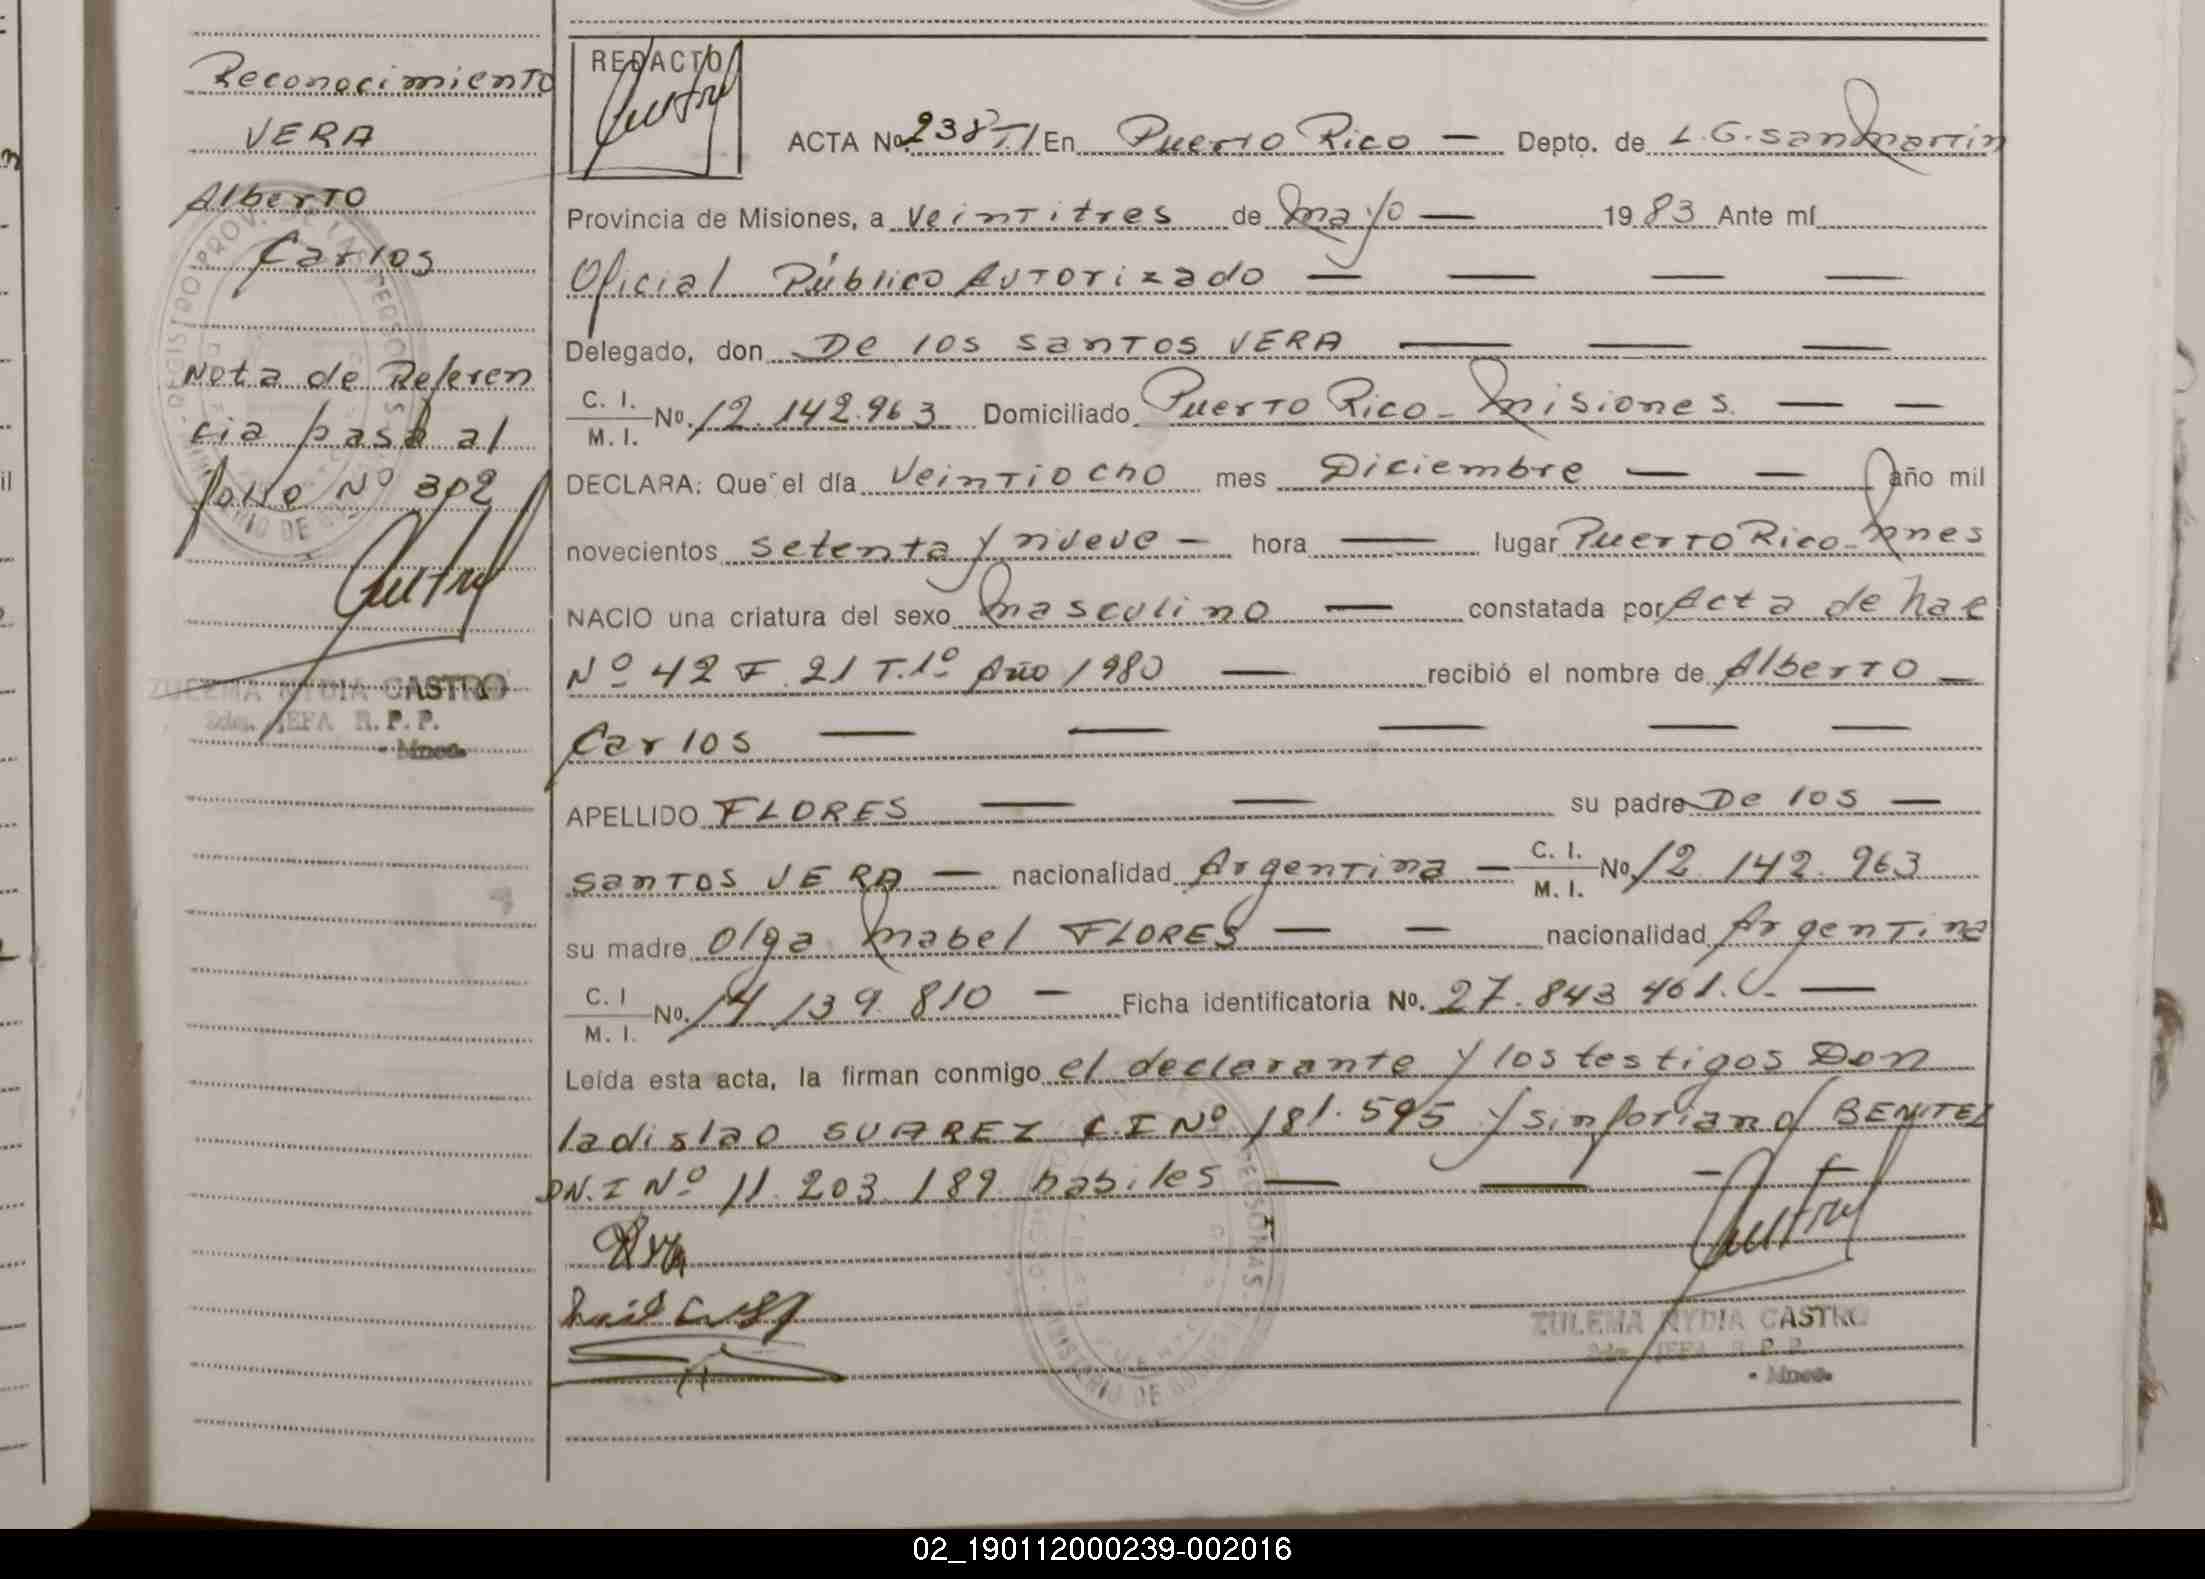 Reconocimiento
VERA
Alberto
Carlos
Nota de Referen
cia pasa al
folio Nº 302
ZULEMA NYDIA CASTRO
JEFA R.P.P.
Mnes.
REDACTO
ACTA Nº 238 TI En Puerto Rico — Depto. de L.G. San Martin
Provincia de Misiones, a veintitres de Mayo — 1983 Ante mí
Oficial Público Autorizado — — — —
Delegado, don De los Santos VERA — — —
C. I. / M. I. Nº. 12.142.963 Domiciliado Puerto Rico - Misiones. — —
DECLARA: Que el día veintiocho mes Diciembre — — año mil
novecientos setenta y nueve — hora — lugar Puerto Rico - Mnes
NACIO una criatura del sexo Masculino — constatada por Acta de Nac
Nº 42 F. 21 T. 1º Año 1980 — recibió el nombre de Alberto —
Carlos — — — — —
APELLIDO FLORES — — su padre De los —
Santos VERA — nacionalidad Argentina — C. I. / M. I. Nº. 12.142.963
su madre Olga Mabel FLORES — — nacionalidad Argentina
C. I / M. I. Nº. 14 139.810 — Ficha identificatoria Nº. 27.843 461. —
Leída esta acta, la firman conmigo el declarante y los testigos Don
ladislao SUAREZ C.I Nº 181.595 y sinforiano BENITEZ
DN.I Nº 11.203.189 habiles — — — —
ZULEMA NYDIA CASTRO
JEFA R.P.P.
Mnes.
02_190112000239-002016